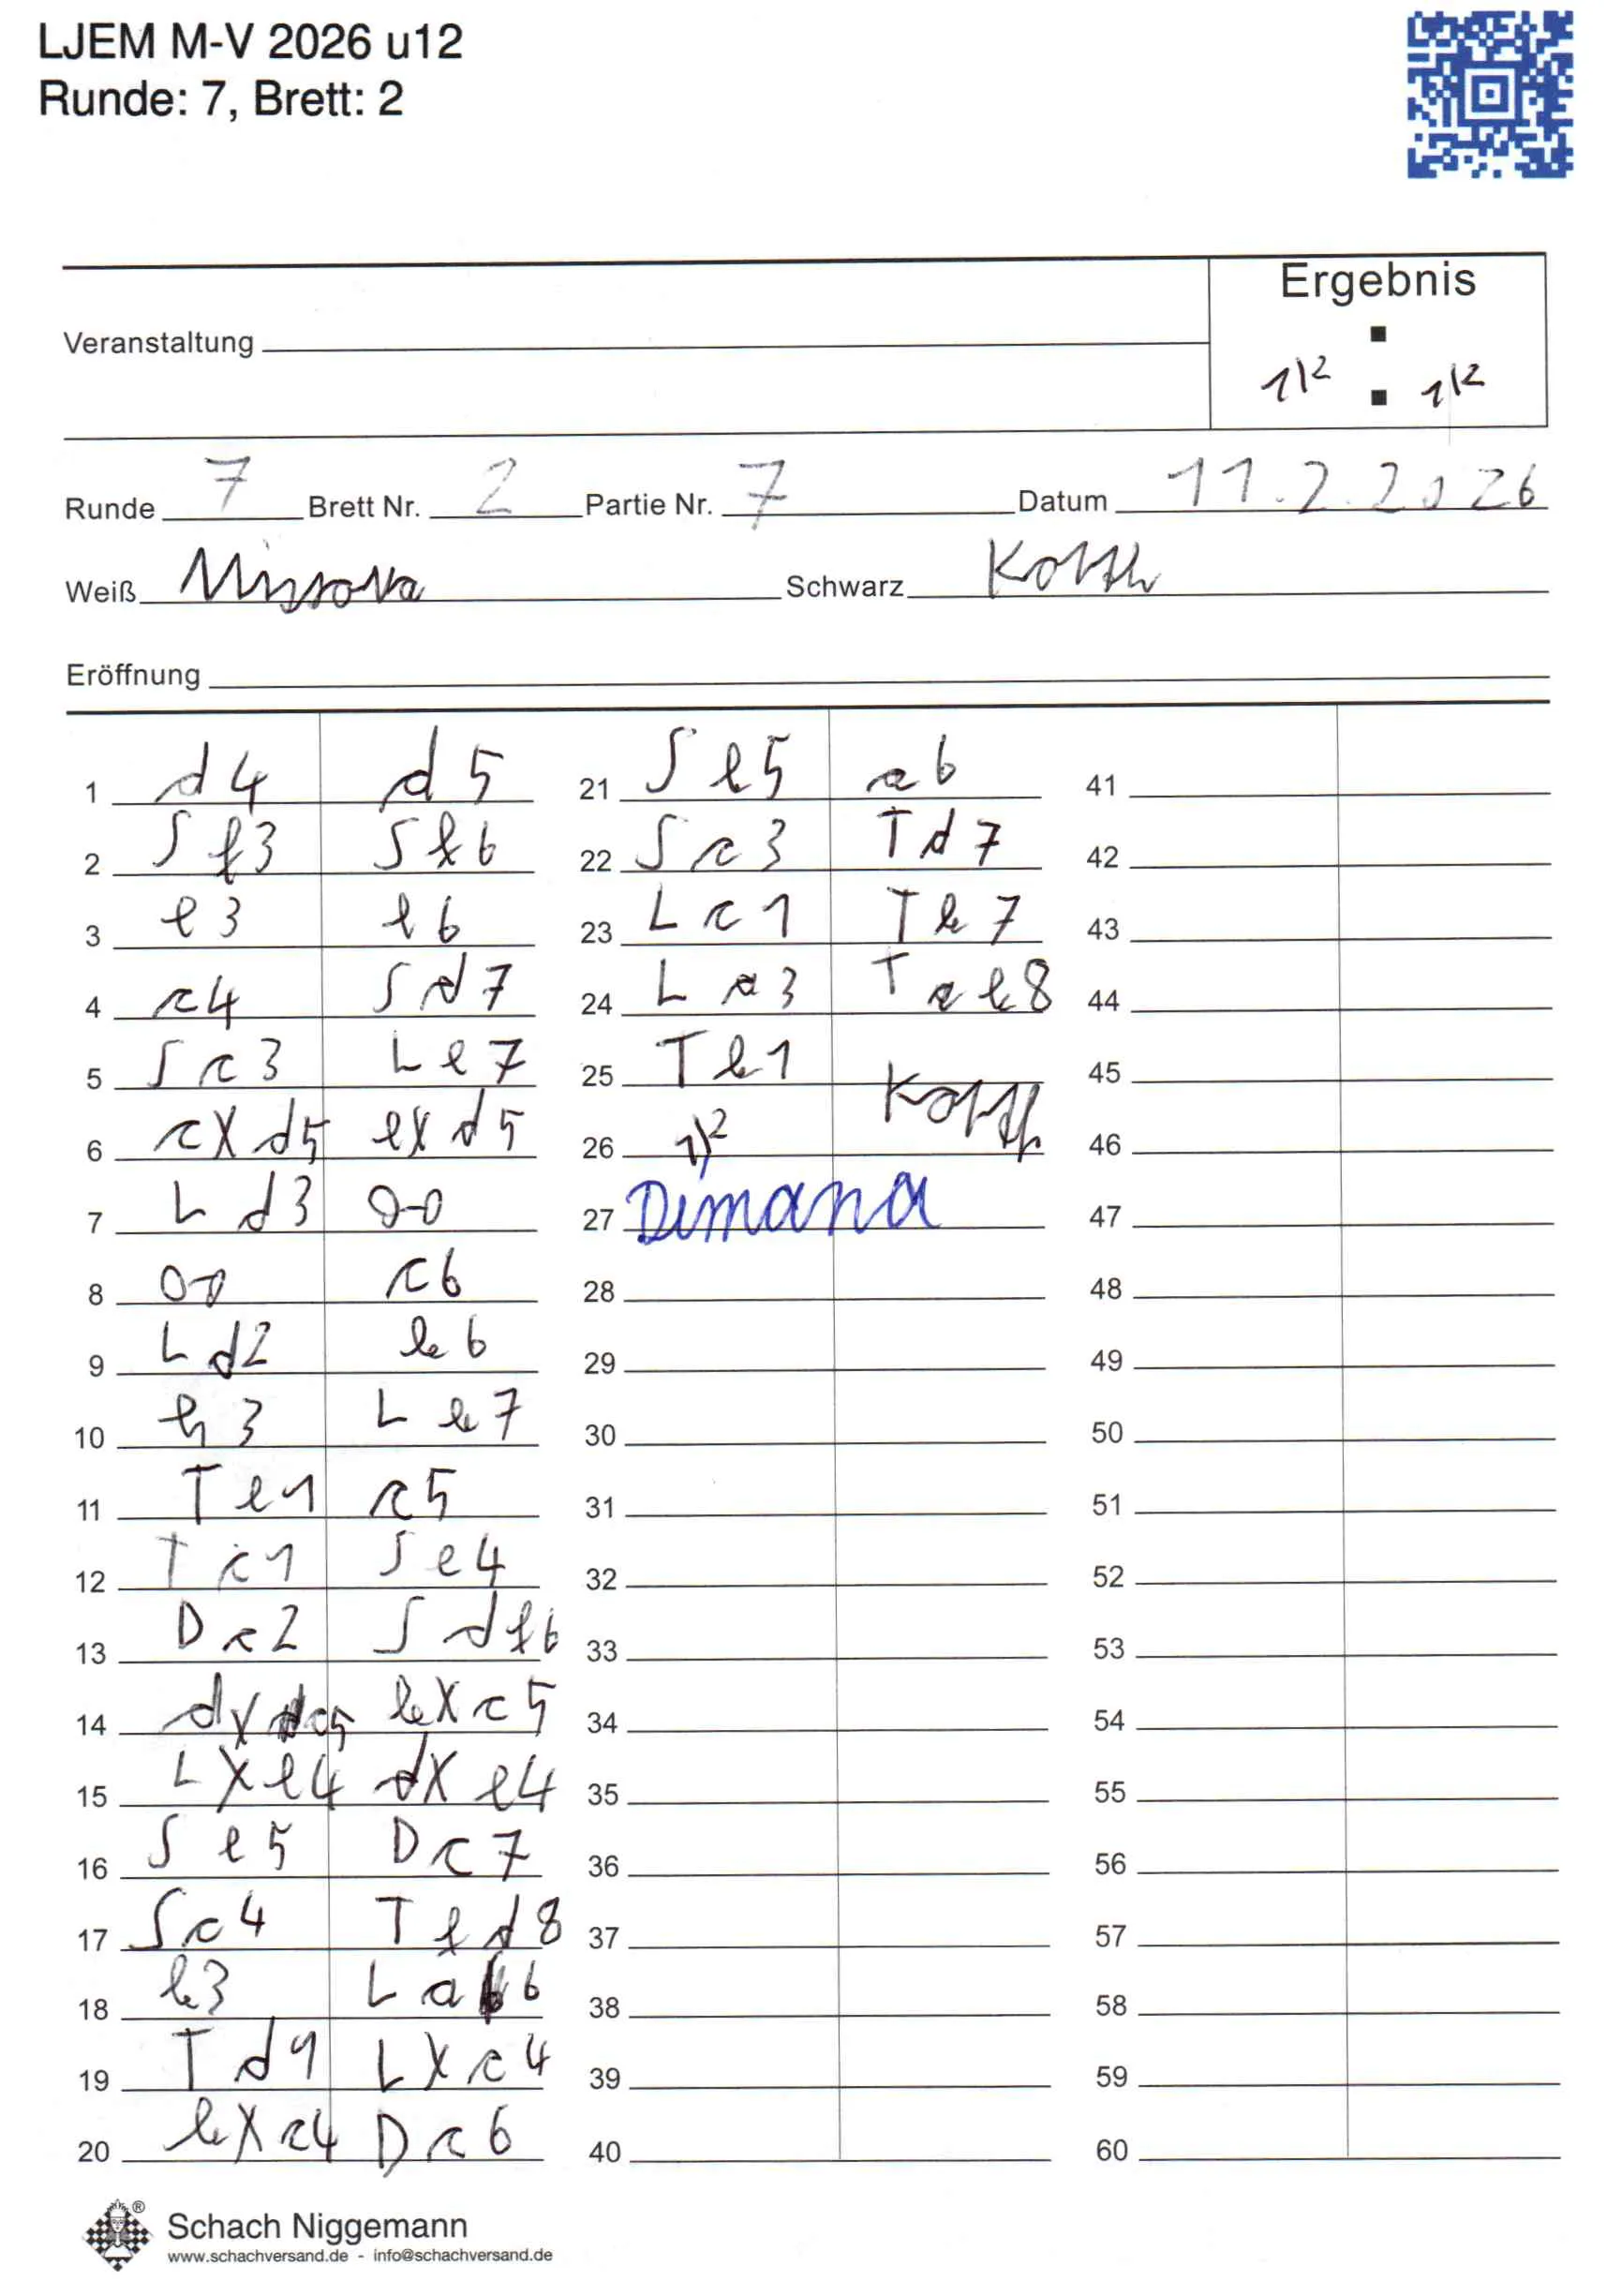 LJEM M-V 2026 u12
Runde: 7, Brett: 2
Ergebnis
Veranstaltung :
1/2 : 1/2
Runde 7 Brett Nr. 2 Partie Nr. 7 Datum 11.2.2026
Weiß Schwarz
Eröffnung
1 d4 d5 21 Se5 a6 41
2 Sf3 Sf6 22 Sc3 Td7 42
3 e3 e6 23 Lc1 Tb7 43
4 c4 Sd7 24 La3 Tab8 44
5 Sc3 Le7 25 Tb1 45
6 cXd5 eXd5 26 1/2 46
7 Ld3 0-0 27 Dimana 47
8 0-0 c6 28 48
9 Ld2 b6 29 49
10 h3 Lb7 30 50
11 Te1 c5 31 51
12 Tc1 Se4 32 52
13 Dc2 Sdf6 33 53
14 dXc5 bXc5 34 54
15 LXe4 dXe4 35 55
16 Se5 Dc7 36 56
17 Sc4 Tfd8 37 57
18 b3 La6 38 58
19 Td1 LXc4 39 59
20 bXc4 Dc6 40 60
® Schach Niggemann
www.schachversand.de - info@schachversand.de